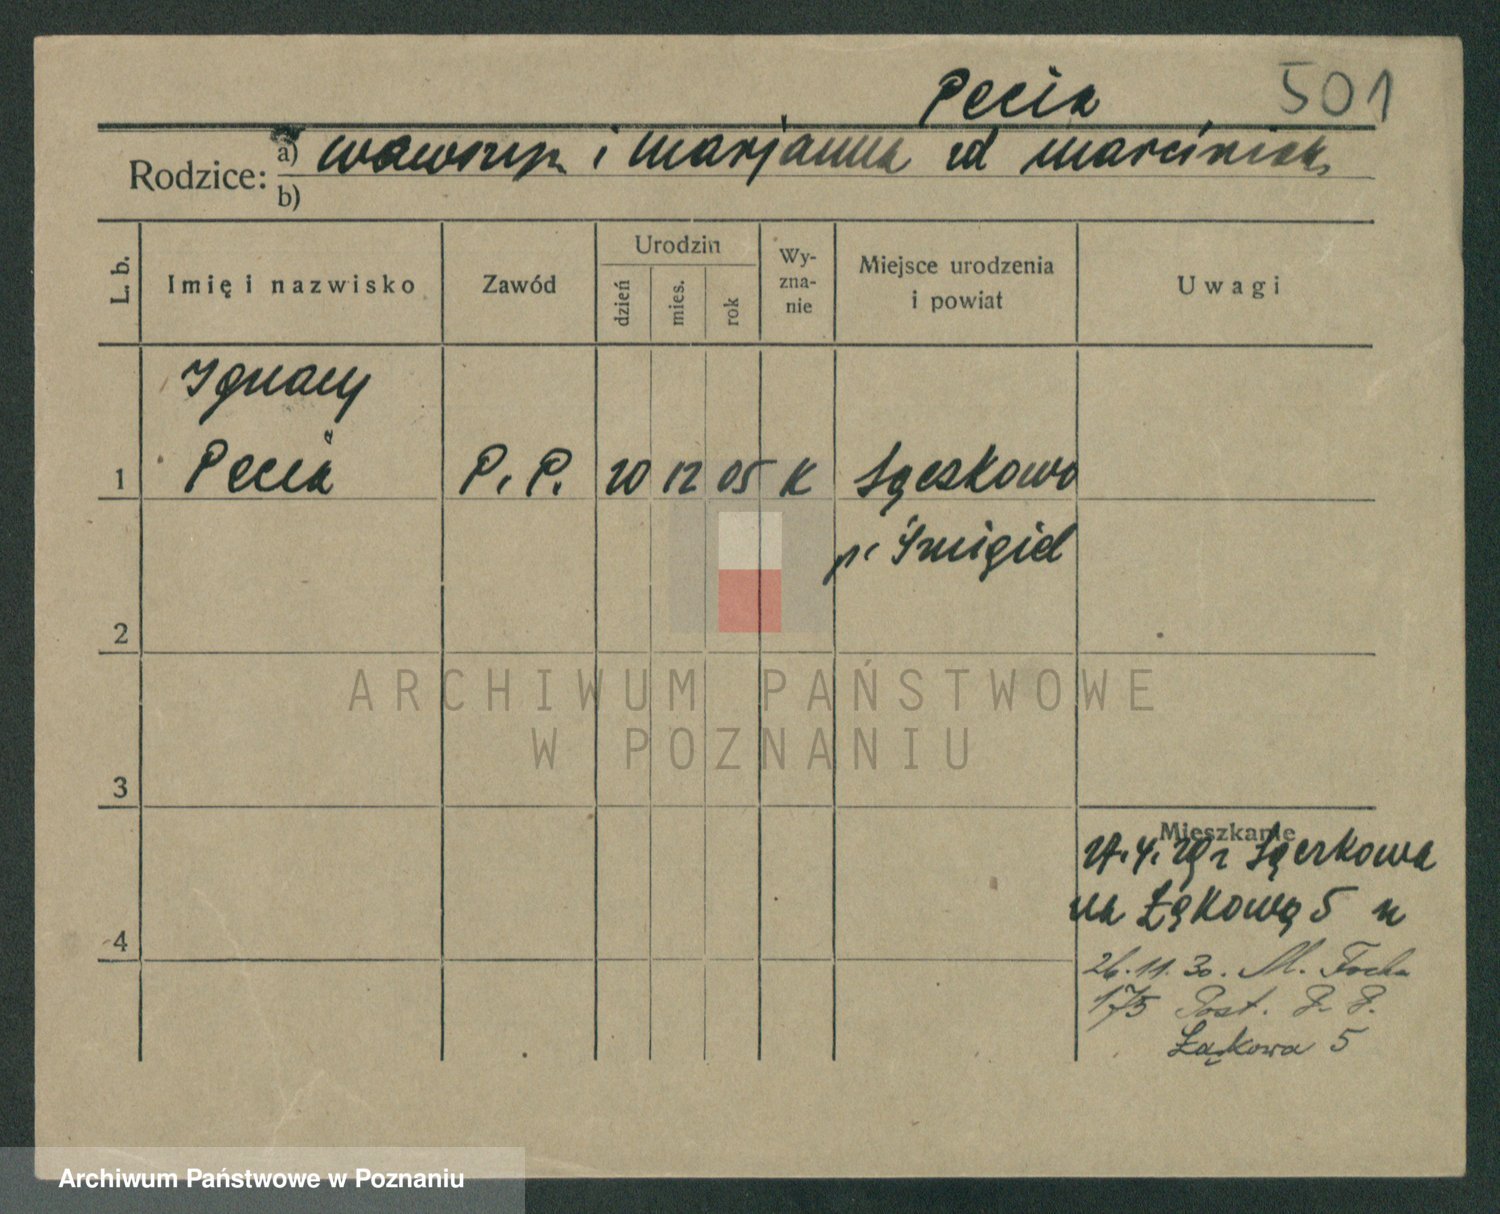 Pecia 501
Rodzice: a) Wawrzyn i Marjanna zd Marciniak
b)
L. b. Imię i nazwisko Zawód Urodzin dzień mies. rok Wy- zna- nie Miejsce urodzenia i powiat Uwagi
Ignacy
1 Pecia P. P. 20 12 05 K Sączkowo
p. Śmigiel
2
ARCHIWUM PAŃSTWOWE
W POZNANIU
3
Mieszkanie
27.4.29 r Sączkowa
na Łąkową 5 n
4
26.11.30. M. Focha
175 Post. P. P.
Łąkowa 5
Archiwum Państwowe w Poznaniu